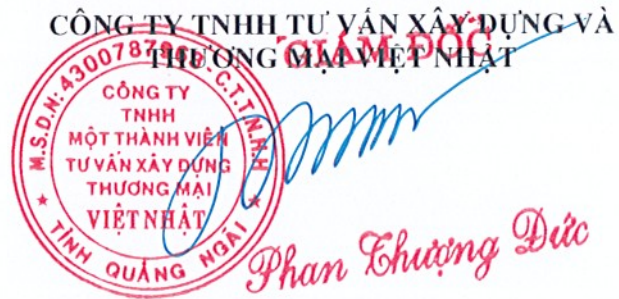 CÔNG TY TNHH TƯ VẤN XÂY DỰNG VÀ
THƯƠNG MẠI VIỆT NHẬT
GIÁM ĐỐC
M.S.D.N: - C.T.T.N.H.H
CÔNG TY
TNHH
MỘT THÀNH VIÊN
TƯ VẤN XÂY DỰNG
THƯƠNG MẠI
VIỆT NHẬT
★ TỈNH QUẢNG NGÃI ★
Phan Thượng Đức